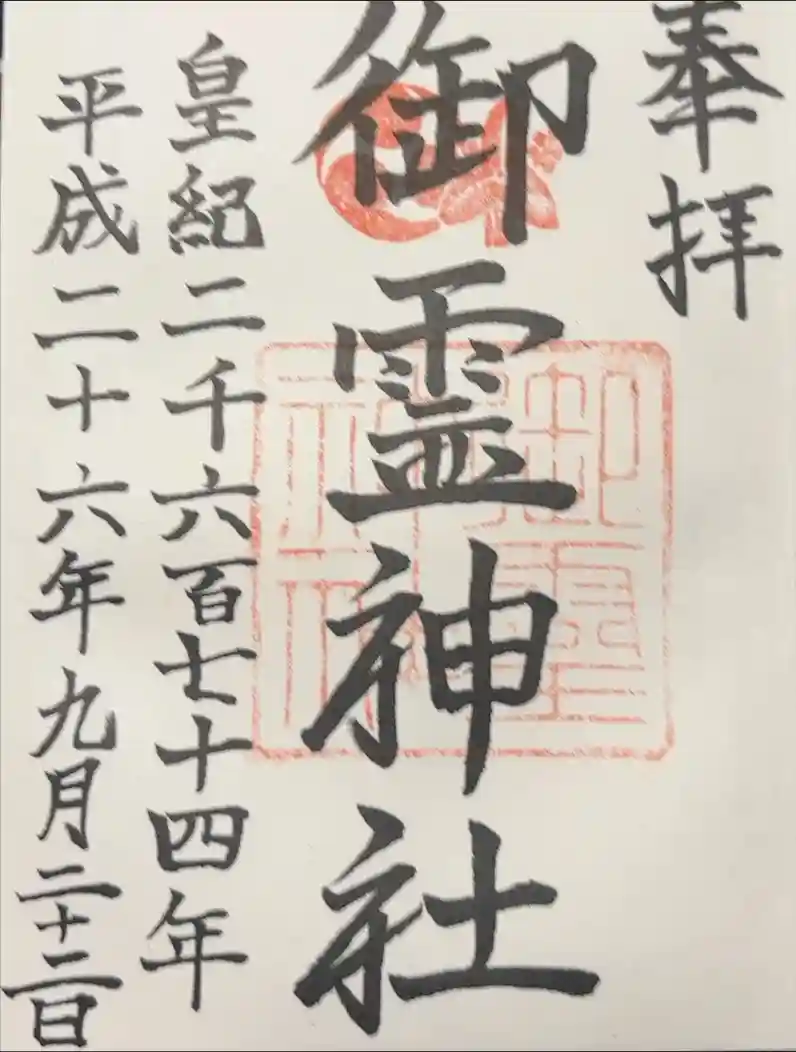 奉拝
御霊神社
皇紀二千六百七十四年
平成二十六年九月二十二日
御靈
神社